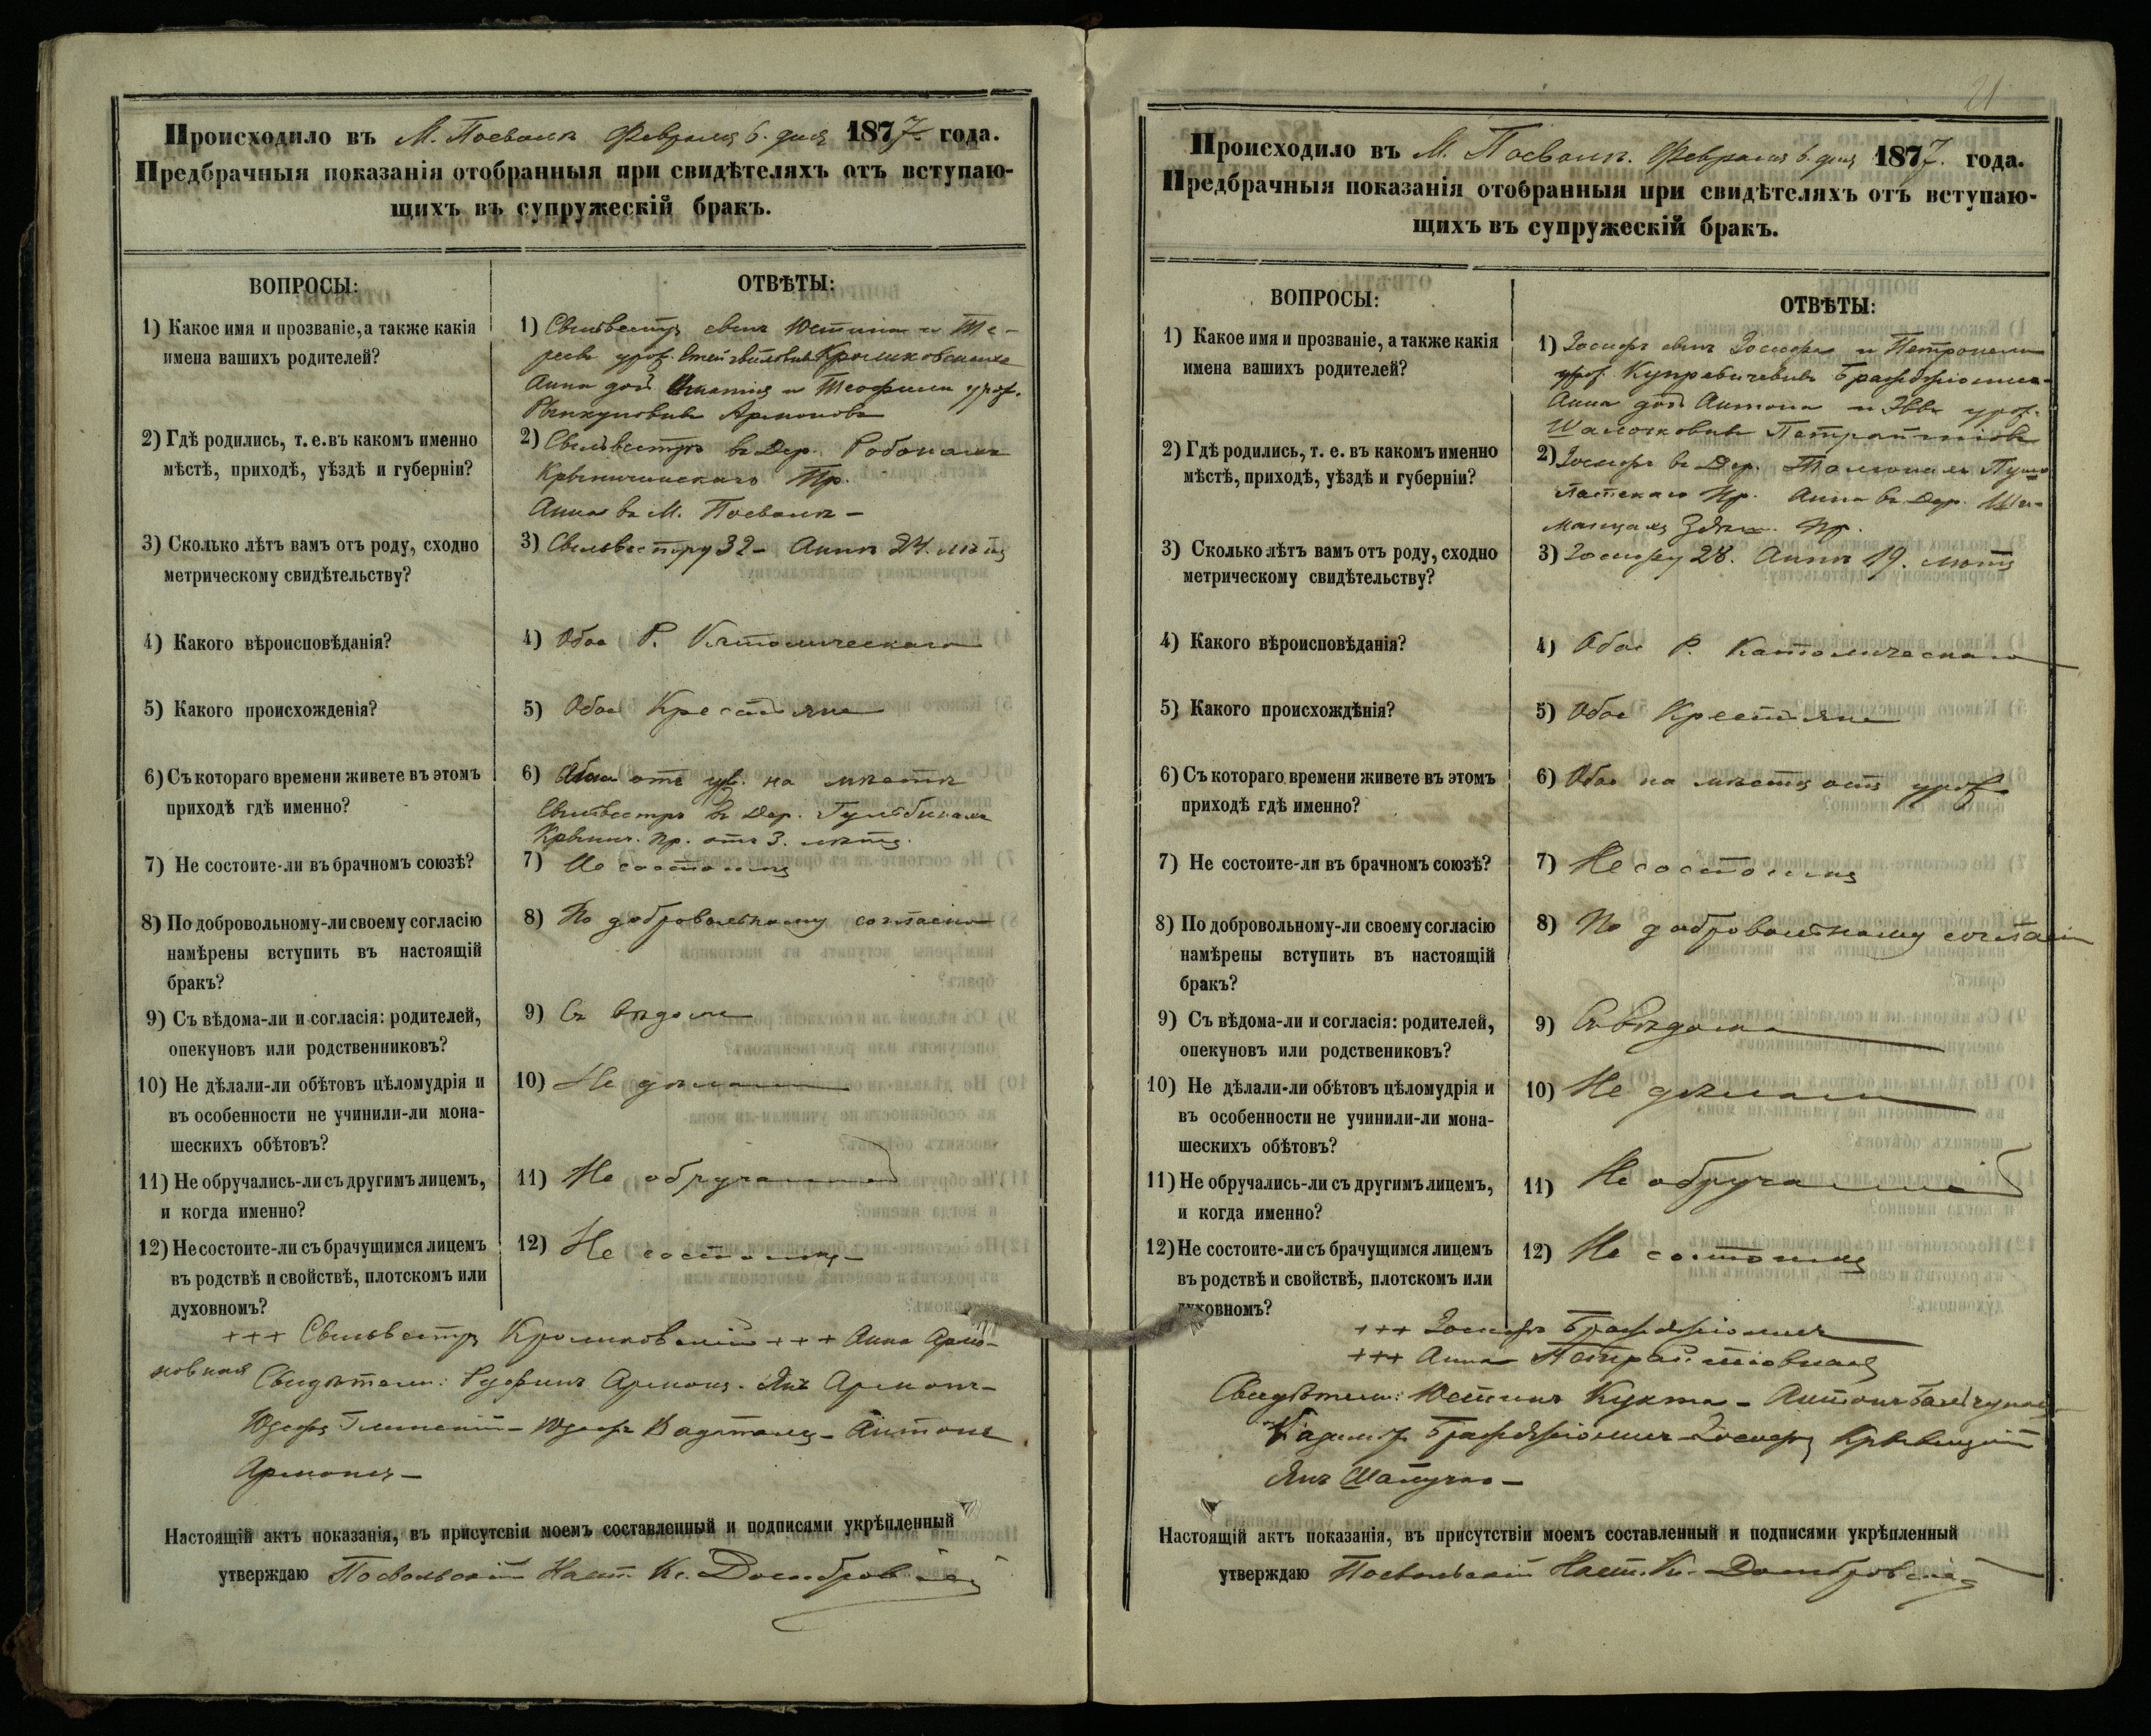 Происходило въ М. Посволѣ Февраля 6. дня 1877. года.
Предбрачныя показанія отобранныя при свидѣтеляхъ отъ вступаю-
щихъ въ супружескій бракъ.
ВОПРОСЫ:
ОТВѢТЫ:
1) Какое имя и прозваніе, а также какія
имена вашихъ родителей?
1) Сильвестръ сынъ Юстина и Те-
ресы урож.
Анна дочь и Теофили урож.
2) Гдѣ родились, т. е. въ какомъ именно
мѣстѣ, приходѣ, уѣздѣ и губерніи?
2) Сильвестръ въ Дер.
Пр.
Анна въ М. Посволѣ -
3) Сколько лѣтъ вамъ отъ роду, сходно
метрическому свидѣтельству?
3) Сильвестру 32 - Аннѣ 24. лѣтъ
4) Какого вѣроисповѣданія?
4) Обое Р. Католическаго
5) Какого происхожденія?
5) Обое Крестьяне
6) Съ котораго времени живете въ этомъ
приходѣ гдѣ именно?
6) Анна отъ ур. на мѣстѣ
Сильвестръ въ Дер.
Пр. отъ 3. лѣтъ.
7) Не состоите-ли въ брачномъ союзѣ?
7) Не состоимъ
8) По добровольному-ли своему согласію
намѣрены вступить въ настоящій
бракъ?
8) По добровольному согласію
9) Съ вѣдома-ли и согласія: родителей,
опекуновъ или родственниковъ?
9) Съ вѣдома
10) Не дѣлали-ли обѣтовъ цѣломудрія и
въ особенности не учинили-ли мона-
шескихъ обѣтовъ?
10) Не дѣлали
11) Не обручались-ли съ другимъ лицемъ,
и когда именно?
11) Не обручались
12) Не состоите-ли съ брачущимся лицемъ
въ родствѣ и свойствѣ, плотскомъ или
духовномъ?
12) Не состоимъ -
+++ Сильвестръ +++ Анна Армо-
новная Свидѣтели: Армонъ. Янъ Армонъ -
Юзефъ Глинскій - Юзефъ - Антонъ
Армонъ -
Настоящій актъ показанія, въ присутсвіи моемъ составленный и подписями укрѣпленный
утверждаю Посвольскій Наст. Кс. Домбровскій
21
Происходило въ М. Посволѣ. Февраля 6. дня 1877. года.
Предбрачныя показанія отобранныя при свидѣтеляхъ отъ вступаю-
щихъ въ супружескій бракъ.
ВОПРОСЫ:
ОТВѢТЫ:
1) Какое имя и прозваніе, а также какія
имена вашихъ родителей?
1) Іосифъ сынъ Іосифа и Петронели
урож.
Анна дочь Антона и Эвы урож.
2) Гдѣ родились, т. е. въ какомъ именно
мѣстѣ, приходѣ, уѣздѣ и губерніи?
2) Іосифъ въ Дер.
Пр. Анна въ Дер.
Пр.
3) Сколько лѣтъ вамъ отъ роду, сходно
метрическому свидѣтельству?
3) Іосифу 28. Аннѣ 19. лѣтъ
4) Какого вѣроисповѣданія?
4) Обое Р. Католическаго
5) Какого происхождѣнія?
5) Обое Крестьяне
6) Съ котораго времени живете въ этомъ
приходѣ гдѣ именно?
6) Обое на мѣстѣ отъ урож.
7) Не состоите-ли въ брачномъ союзѣ?
7) Не состоимъ
8) По добровольному-ли своему согласію
намѣрены вступить въ настоящій
бракъ?
8) По добровольному согласію
9) Съ вѣдома-ли и согласія: родителей,
опекуновъ или родствениковъ?
9) Съ вѣдома
10) Не дѣлали-ли обѣтовъ цѣломудрія и
въ особенности не учинили-ли мона-
шескихъ обѣтовъ?
10) Не дѣлали
11) Не обручались-ли съ другимъ лицемъ,
и когда именно?
11) Не обручались
12) Не состоите-ли съ брачущимся лицемъ
въ родствѣ и свойствѣ, плотскомъ или
духовномъ?
12) Не состоимъ
+++ Іосифъ
+++ Анна
Свидѣтели: Юстинъ Кухта - Антонъ
Казимір. Іосифъ
Янъ
Настоящій актъ показанія, въ присутствіи моемъ составленный и подписями укрѣпленный
утверждаю Посвольскій Наст. К. Домбровскій